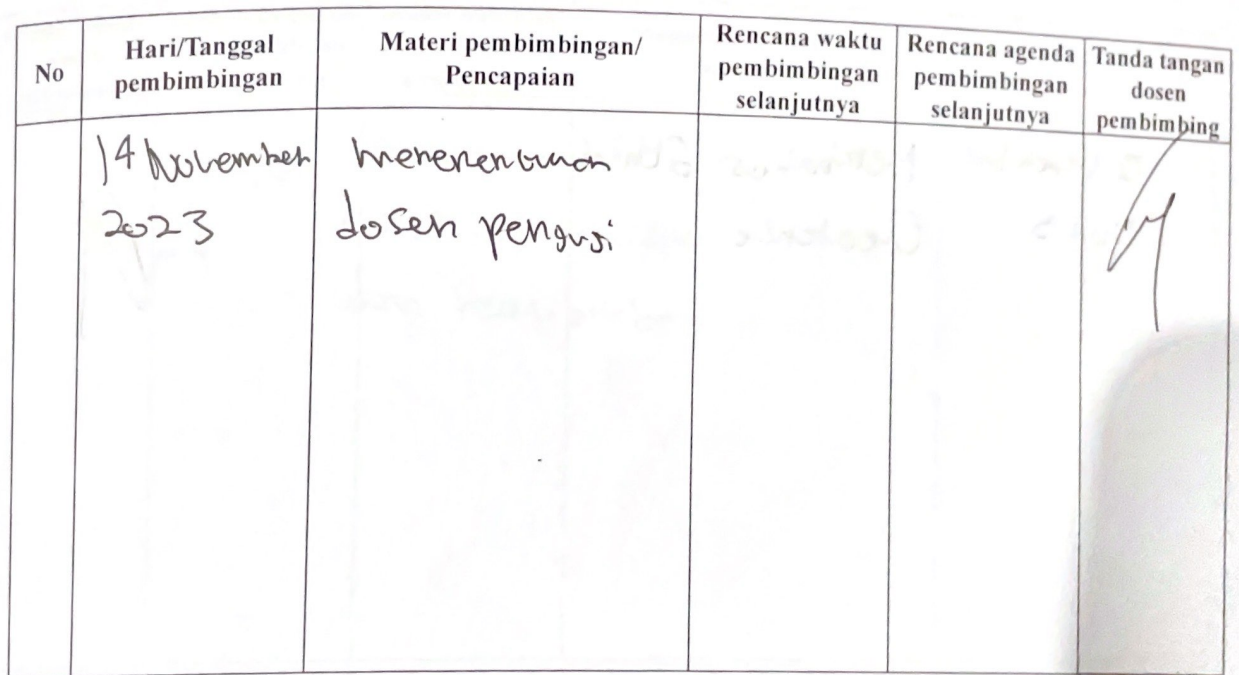 No
Hari/Tanggal
pembimbingan
Materi pembimbingan/
Pencapaian
Rencana waktu
pembimbingan
selanjutnya
Rencana agenda
pembimbingan
selanjutnya
Tanda tangan
dosen
pembimbing
14 November
2023
dosen penguji